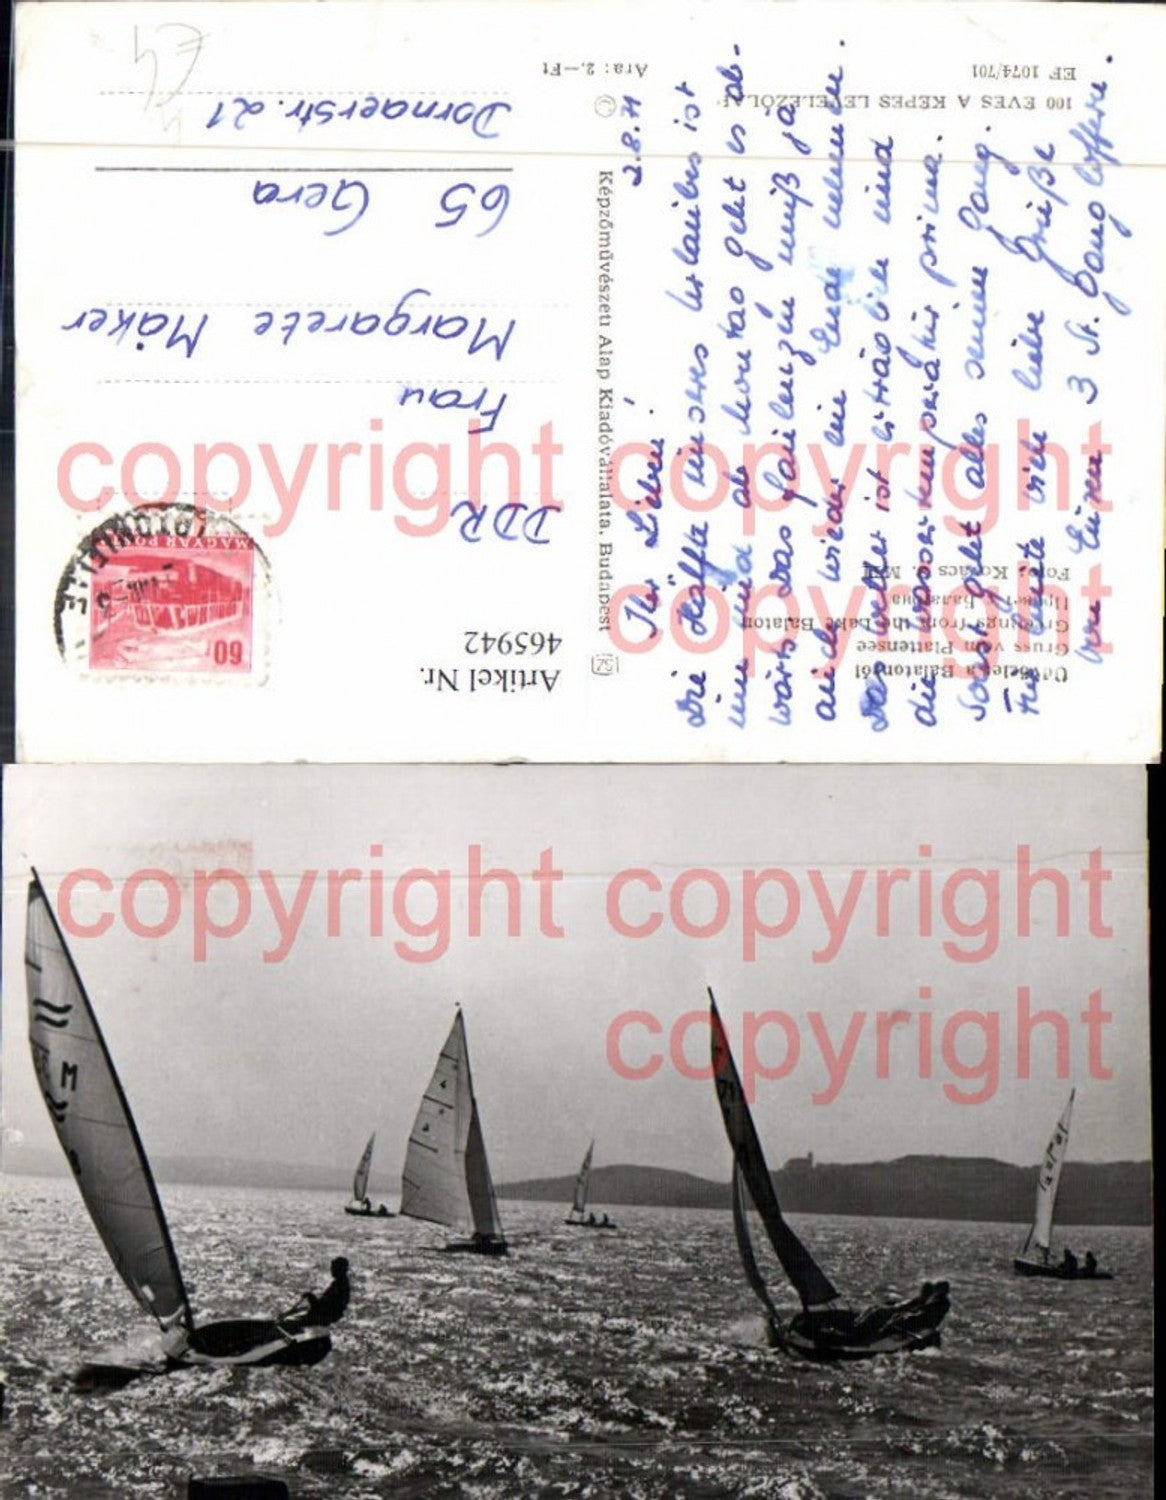 Üdvözlet a Balatonról
Gruss vom Plattensee
Greetings from the Lake Balaton
Foto: Kovács
100 ÉVES A KÉPES LEVELEZŐLAP
EF 1074/701
Ára: 2.—Ft
Képzőművészeti Alap Kiadóvállalata, Budapest
Artikel Nr.
465942
60
MAGYAR POSTA
2.8.71
Ihr Lieben!
Die Hälfte unseres Urlaubes ist
um und ab Montag geht es ab-
wärts. Das Faulenzen muß ja
auch wieder ein Ende nehmen.
Das Wetter ist und
die Wassertemperatur prima.
Sonst geht alles seinen Gang.
Für heute viele liebe Grüße
von Euren 3 St. Gangloffern.
DDR
Frau
Margarete Mäker
65 Gera
Dornaerstr. 21
copyright copyright
copyright
copyright copyright
copyright
M